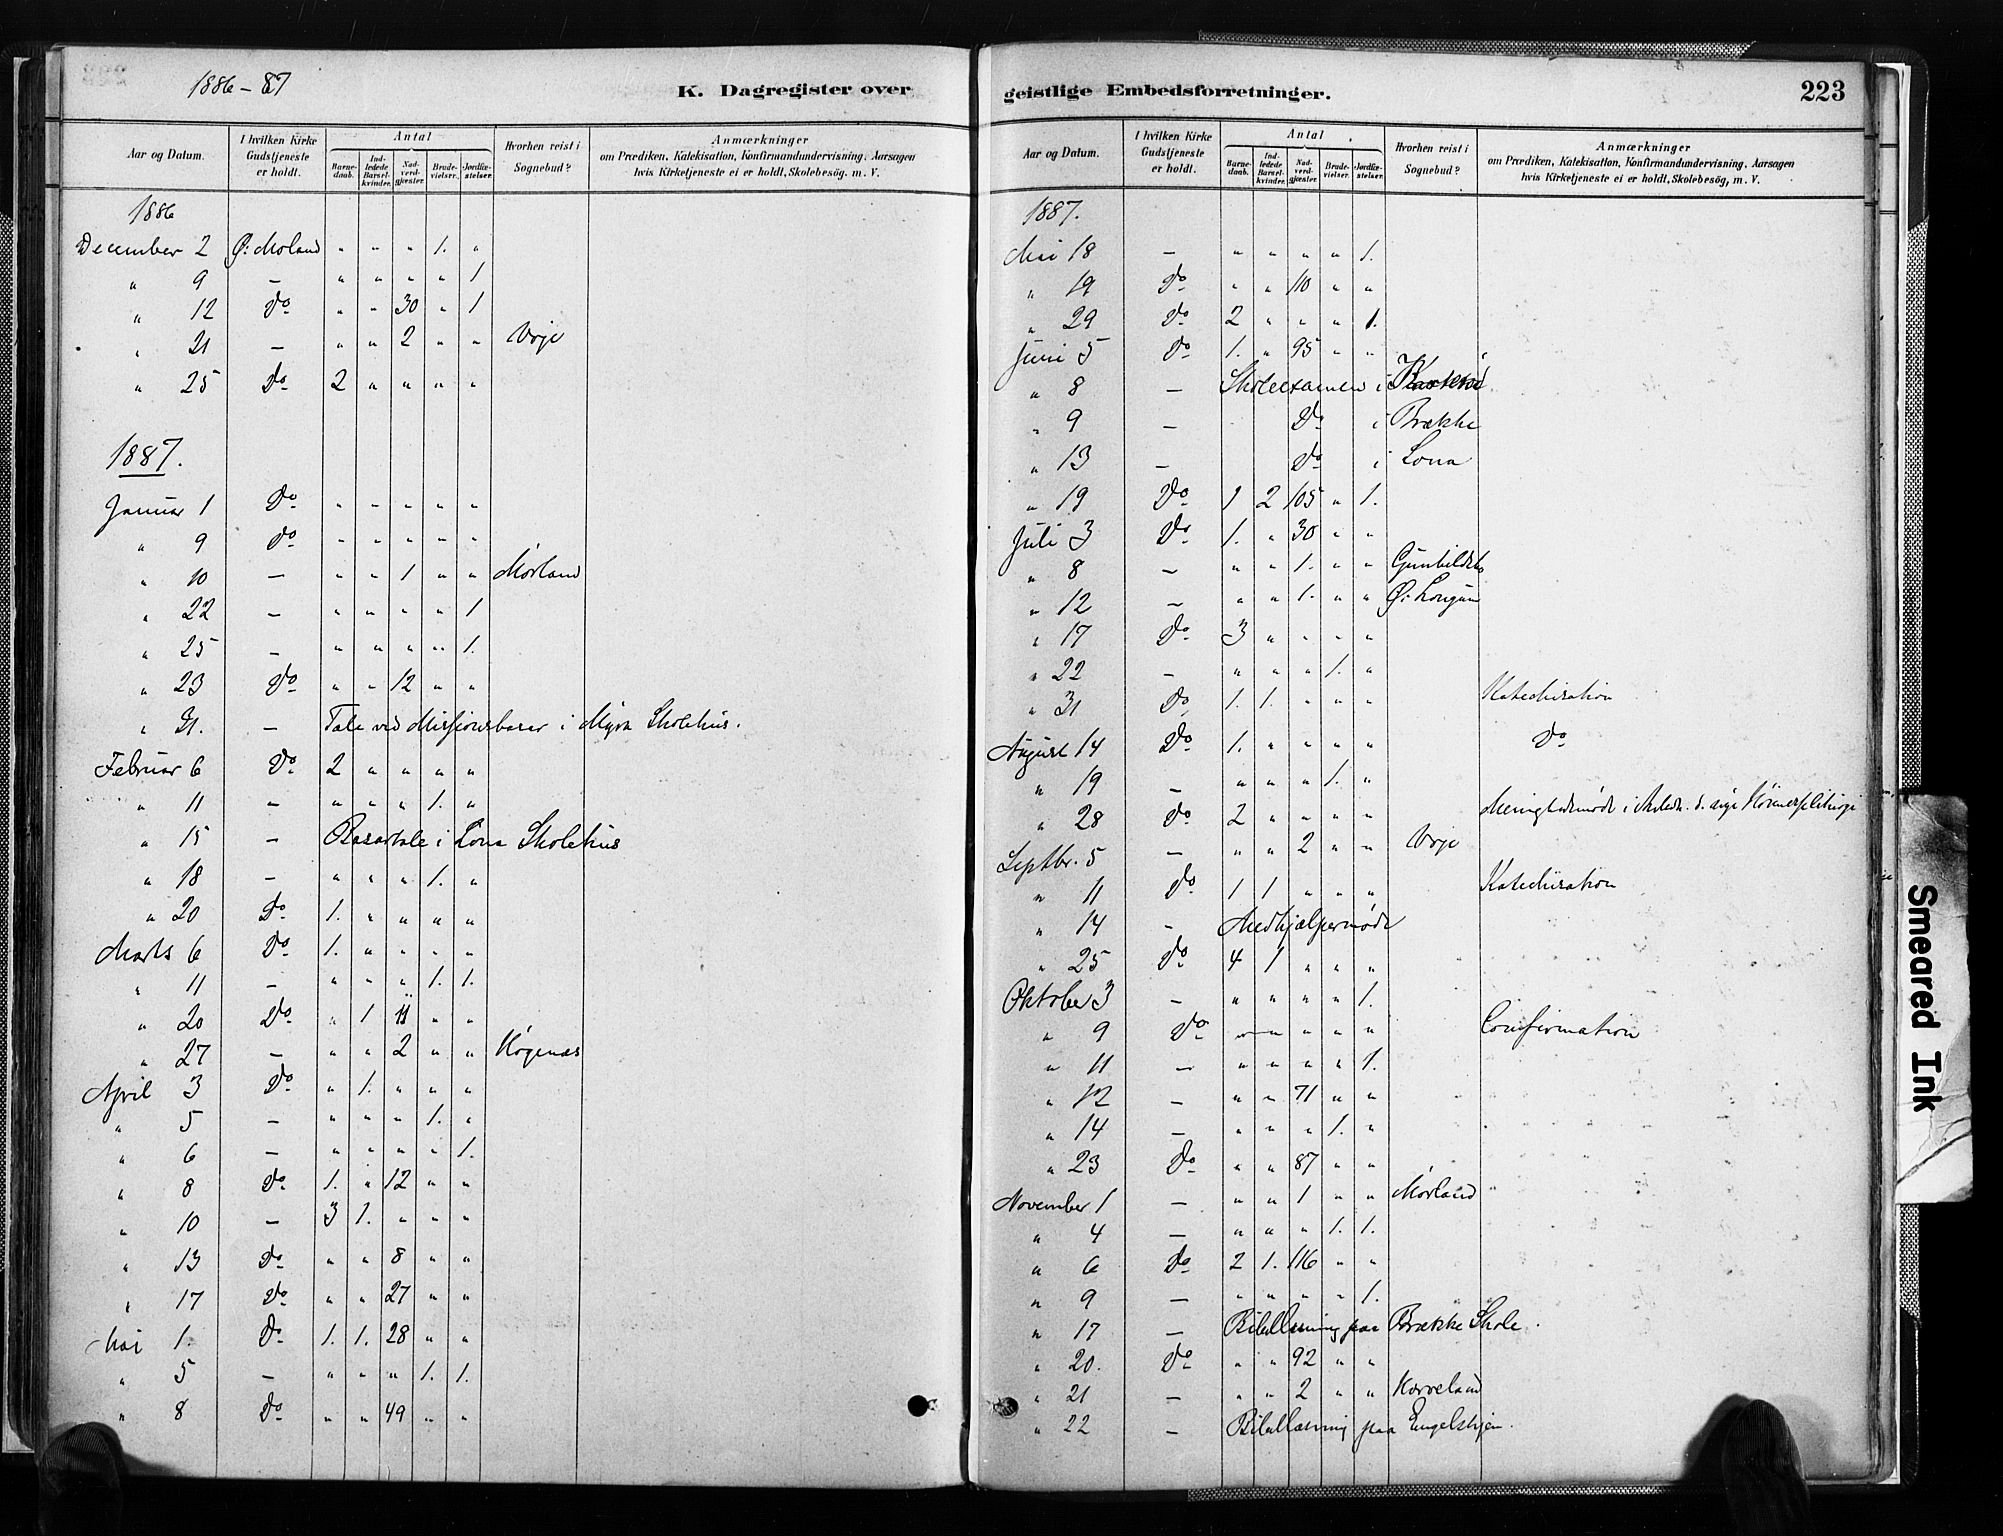 1886-87
K. Dagregister over
Aar og Datum. | I hvilken Kirke Gudstjeneste er holdt. | Antal | Barnedaab. | Indledede Barselkvinder. | Nadverdgjæster. | Brudevielser. | Jordfæstelser. | Hvorhen reist i Sognebud? | Anmærkninger om Prædiken, Katekisation, Konfirmandundervisning, Aarsagen hvis Kirketjeneste ei er holdt, Skolebesøg. m. V.
1886
December 2 Ø: Moland " " " 1. "
" 9 — " " " " 1
" 12 Do " " 30 " 1
" 21 — " " 2 " " Vrje
" 25 Do 2 " " " "
1887.
Januar 1 Do " " " " "
" 9 Do " " " " "
" 10 — " " 1 " " Mørland
" 22 — " " " " 1
" 25 — " " " " 1.
" 23 Do " " 12 " "
" 31. — Tale ved Missionsbasar i Myra Skolehus.
Februar 6 Do 2 " " " "
" 11 — " " " 1. "
" 15 — Basartale i Lona Skolehus
" 18 — " " " 1. "
" 20 Do 1. " " " "
Marts 6 Do 1. " " " "
" 11 — " " " 1. 1.
" 20 Do " 1 11 " "
" 27 — " " 2 " " Høgenæs
April 3 Do " 1. " " "
" 5 — " " " 1. "
" 6 — " " " " 1.
" 8 Do 1. " 12 " "
" 10 — 3 1. " " "
" 13 Do " " 8 " "
" 17 Do " " 27 " "
Mai 1. Do 1. 1. 28 " "
" 5 — " " " 1. 1.
" 8 Do " " 49 " "
geistlige Embedsforretninger.
223
Aar og Datum. | I hvilken Kirke Gudstjeneste er holdt. | Antal | Barnedaab. | Indledede Barselkvinder. | Nadverdgjæster. | Brudevielser. | Jordfæstelser. | Hvorhen reist i Sognebud? | Anmærkninger om Prædiken, Katekisation, Konfirmandundervisning, Aarsagen hvis Kirketjeneste ei er holdt, Skolebesøg, m. V.
1887.
Mai 18 — " " " " 1.
" 19 Do " " 110 " "
" 29 Do 2 " " " 1.
Juni 5 Do 1. " 95 " "
" 8 — Skoleexamen i
" 9 — Do i Brække
" 13 — Do i Lona
" 19 Do 1 2 105 " 1.
Juli 3 Do 1. " 30 " "
" 8 — " " 1. " "
" 12 — " " 1. " " Ø: Longum
" 17 Do 3 " " " "
" 22 — " " " 1. "
" 31 Do 1. 1. " " " Katechisation
August 14 Do 1. " " " " Do
" 19 — " " " 1. "
" 28 Do 2 " " " " Menighedsmøde i
Septbr. 5 — " " 2 " " Vrje
" 11 Do 1 1 " " " Katechisation
" 14 — Medhjælpermøde
" 25 Do 4 1 " " "
Oktober 3 — " " " " 1.
" 9 Do " " " " " Confirmation
" 11 — " " " " 1.
" 12 — " " 71 " "
" 14 — " " " 1. "
" 23 Do " " 87 " "
November 1 — " " 1 " " Mørland
" 4 — " " " 1. 1.
" 6 Do 2 1. 116 " "
" 9 — " " " " 1.
" 17 — Bibellæsning paa Brække Skole.
" 20. Do " " 92 " "
" 21 — " " 2 " " Korveland
" 22 — Bibellæsning paa Engelskjøn.
Smeared Ink